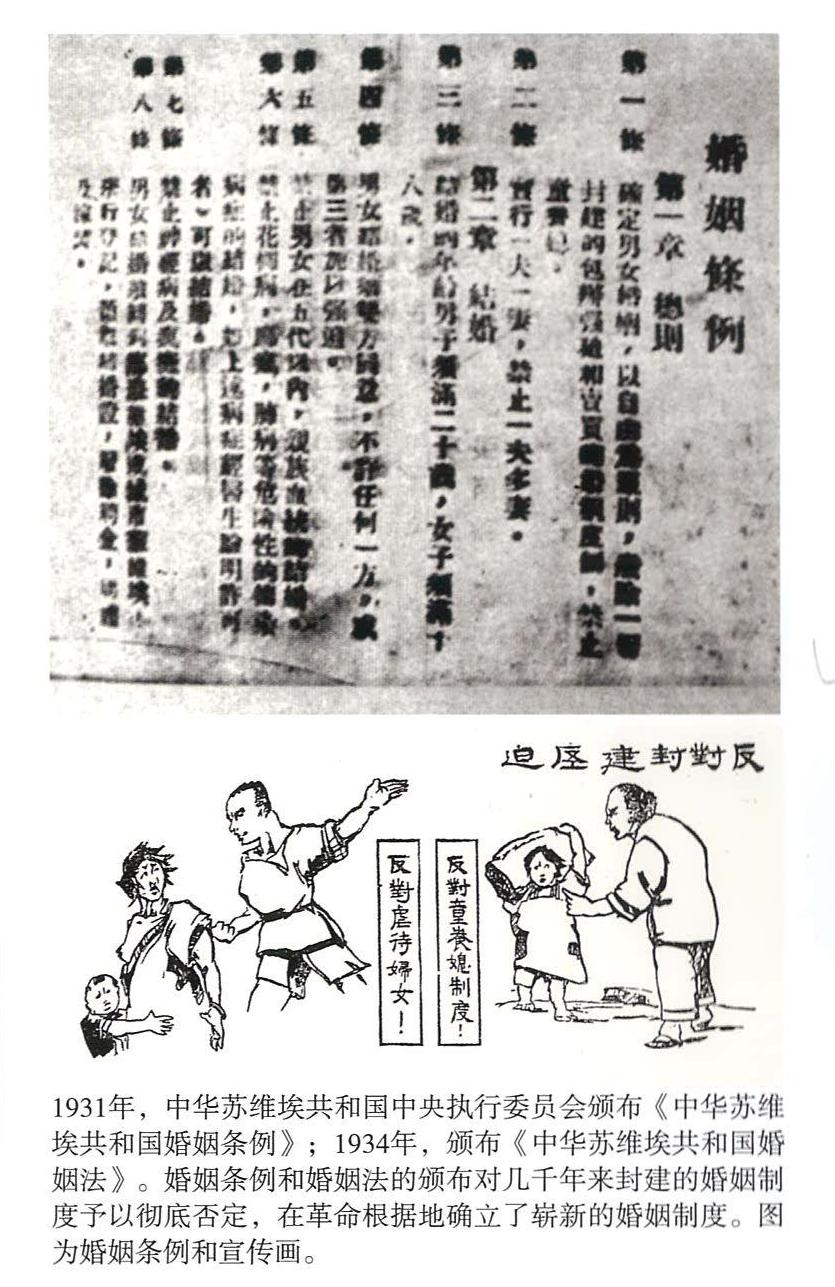 婚姻條例
第一章 總則
第一條 確定男女婚姻,以自由為原則,廢除一切
封建的包辦强迫和賣買的婚姻制度,禁止
童養媳。
第二條 實行一夫一妻,禁止一夫多妻。
第二章 結婚
第三條 結婚的年齡男子須滿二十歲,女子須滿十
八歲。
第四條 男女結婚須雙方同意,不許任何一方,或
第三者加以强迫。
第五條 禁止男女在五代以內,親族血統的結婚。
第六條 禁止花柳病,麻瘋,肺病等危險性的傳染
病症的結婚,上述病症經醫生驗明許可
者,可以結婚。
第七條 禁止神經病及瘋癱的結婚。
第八條 男女結婚須同到蘇維埃或城市蘇維埃,
舉行登記,領取結婚證,廢除聘金,聘禮
及嫁妝。
反對封建压迫
反對童養媳制度!
反對虐待婦女!
1931年，中华苏维埃共和国中央执行委员会颁布《中华苏维
埃共和国婚姻条例》；1934年，颁布《中华苏维埃共和国婚
姻法》。婚姻条例和婚姻法的颁布对几千年来封建的婚姻制
度予以彻底否定，在革命根据地确立了崭新的婚姻制度。图
为婚姻条例和宣传画。